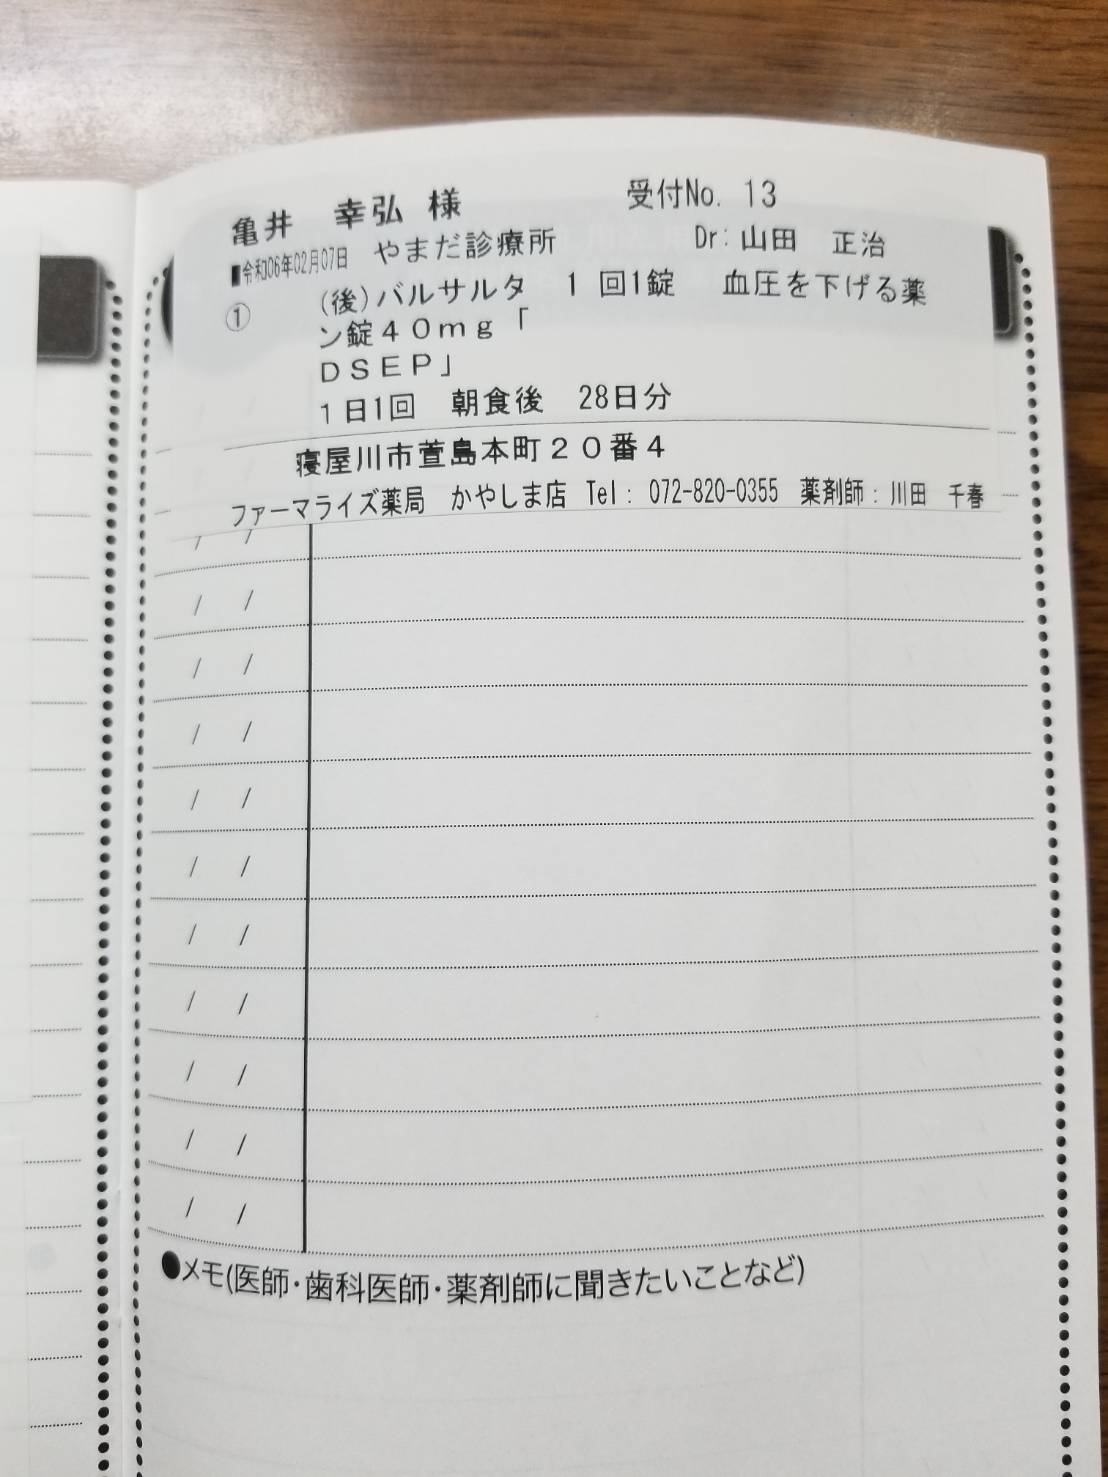 亀井　幸弘 様　受付No. 13
■令和06年02月07日　やまだ診療所　Dr: 山田　正治
①　(後)バルサルタ　1 回1錠　血圧を下げる薬
ン錠４０ｍｇ「
ＤＳＥＰ」
1日1回　朝食後　28日分
寝屋川市萱島本町２０番４
ファーマライズ薬局　かやしま店　Tel: 072-820-0355　薬剤師: 川田　千春
/　/
/　/
/　/
/　/
/　/
/　/
/　/
/　/
/　/
/　/
/　/
●メモ(医師・歯科医師・薬剤師に聞きたいことなど)